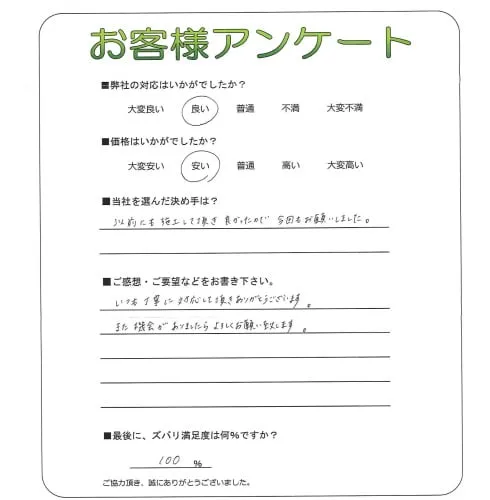 お客様アンケート
■弊社の対応はいかがでしたか？
大変良い 良い 普通 不満 大変不満
■価格はいかがでしたか？
大変安い 安い 普通 高い 大変高い
■当社を選んだ決め手は？
以前にも施工して頂き良かったので今回もお願いしました。
■ご感想・ご要望などをお書き下さい。
いつも丁寧に対応して頂きありがとうございます。
また機会がありましたらよろしくお願い致します。
■最後に、ズバリ満足度は何%ですか？
100 %
ご協力頂き、誠にありがとうございました。